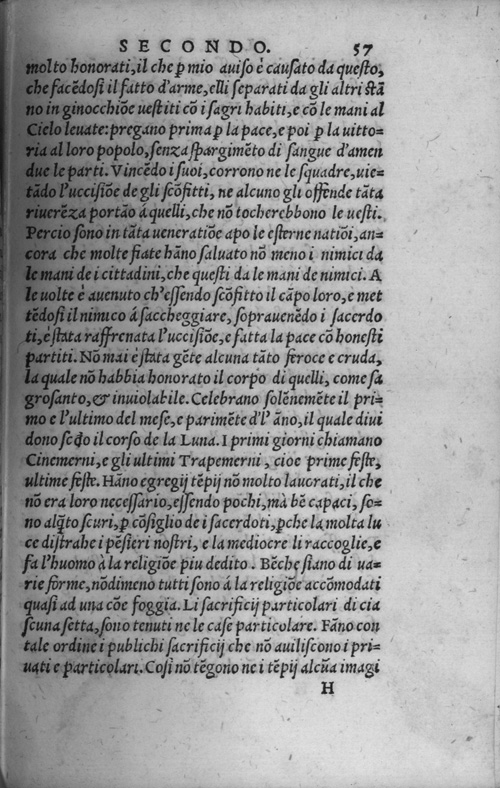 SECONDO. 57
molto honorati, il che ꝑ mio auiso è causato da questo,
che facẽdosi il fatto d'arme, elli separati da gli altri stã
no in ginocchiõe uestiti cõ i sagri habiti, e cõ le mani al
Cielo leuate: pregano prima ꝑ la pace, e poi ꝑ la uitto=
ria al loro popolo, senza spargimẽto di sangue d'amen
due le parti. Vincẽdo i suoi, corrono ne le squadre, uie=
tãdo l'uccisiõe de gli scõfitti, ne alcuno gli offende tãta
riuerẽza portão á quelli, che nõ tocherebbono le uesti.
Percio sono in tãta ueneratiõe apo le esterne natiõi, an=
cora che molte fiate hãno saluato nõ meno i nimici da
le mani de i cittadini, che questi da le mani de nimici. A
le uolte è auenuto ch'essendo scõfitto il cãpo loro, e met
tẽdosi il nimico á saccheggiare, soprauenẽdo i sacerdo
ti, è stata raffrenata l'uccisiõe, e fatta la pace cõ honesti
partiti. Nõ mai è stata gẽte alcuna tãto feroce e cruda,
la quale nõ habbia honorato il corpo di quelli, come sa
grosanto, & inuiolabile. Celebrano solẽnemẽte il pri=
mo e l'ultimo del mese, e parimẽte d'l' ãno, il quale diui
dono secõdo il corso de la Luna. I primi giorni chiamano
Cinemerni, e gli ultimi Trapemerni, cioe prime feste,
ultime feste. Hãno egregij tẽpij nõ molto lauorati, il che
nõ era loro necessario, essendo pochi, mà bẽ capaci, so=
no alq̃to scuri, ꝑ cõsiglio de i sacerdoti, ꝑche la molta lu
ce distrahe i pẽsieri nostri, e la mediocre li raccoglie, e
fa l'huomo à la religiõe piu dedito. Bẽche siano di ua=
rie forme, nõdimeno tutti sono á la religiõe accõmodati
quasi ad una cõe foggia. Li sacrificij particolari di cia
scuna setta, sono tenuti ne le case particolare. Fãno con
tale ordine i publichi sacrificij che nõ auiliscono i pri=
uati e particolari. Cosi nõ tẽgono ne i tẽpij alcũa imagi
H